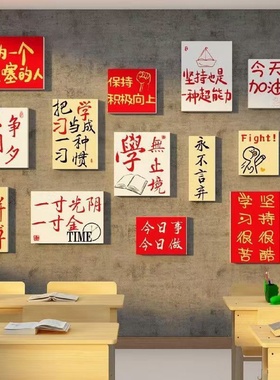 为一个
的人
保持
积极向上
坚持也是
一种超能力
今天
加油
争
夕
把学
习当成
一种
习惯
學無止境
永不言弃
Fight!
一寸光阴
一寸金
TIME
今日事
今日做
坚持很酷
学习很苦